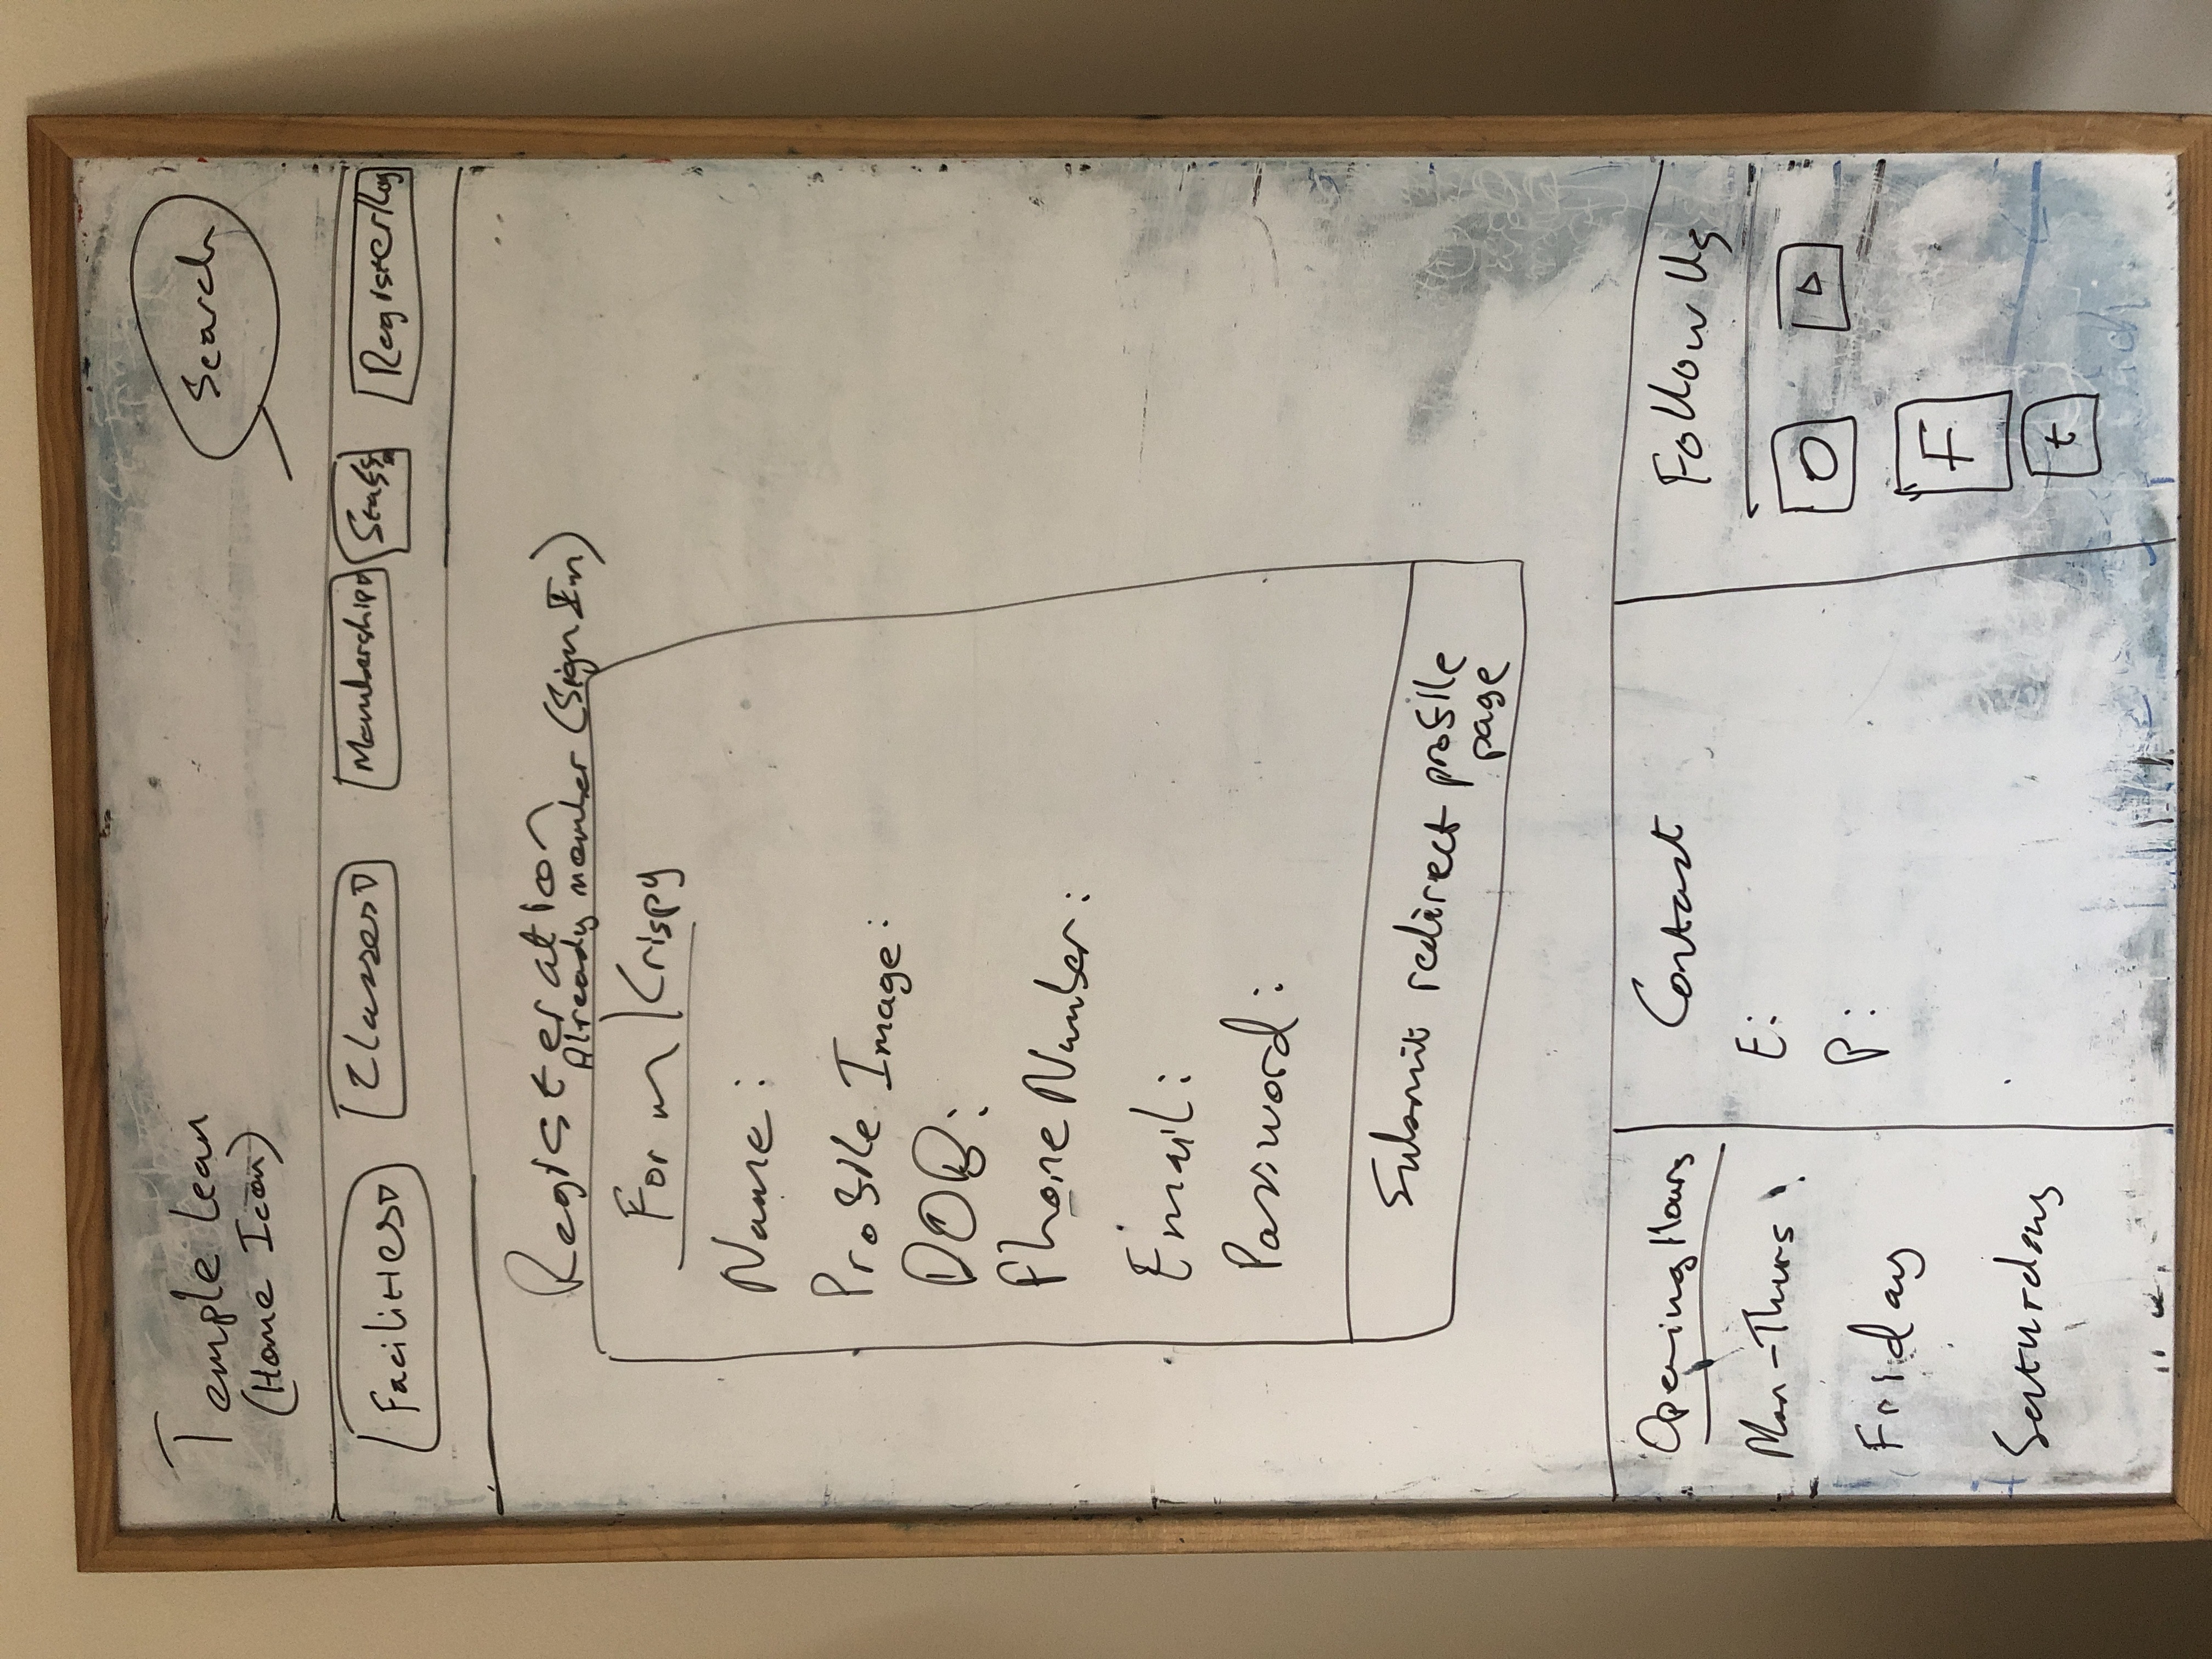 Temple Lean
(Home Icon)
Search
Facilities
Classes
Membership
Staff
Register/Log
Registeration
Already member (Sign In)
Form | Crispy
Name:
Profile Image:
DOB:
Phone Number:
Email:
Password:
Submit redirect profile
page
Opening Hours
Mon-Thurs:
Friday
Saturday
Contact
E:
P:
Follow Us
F
t